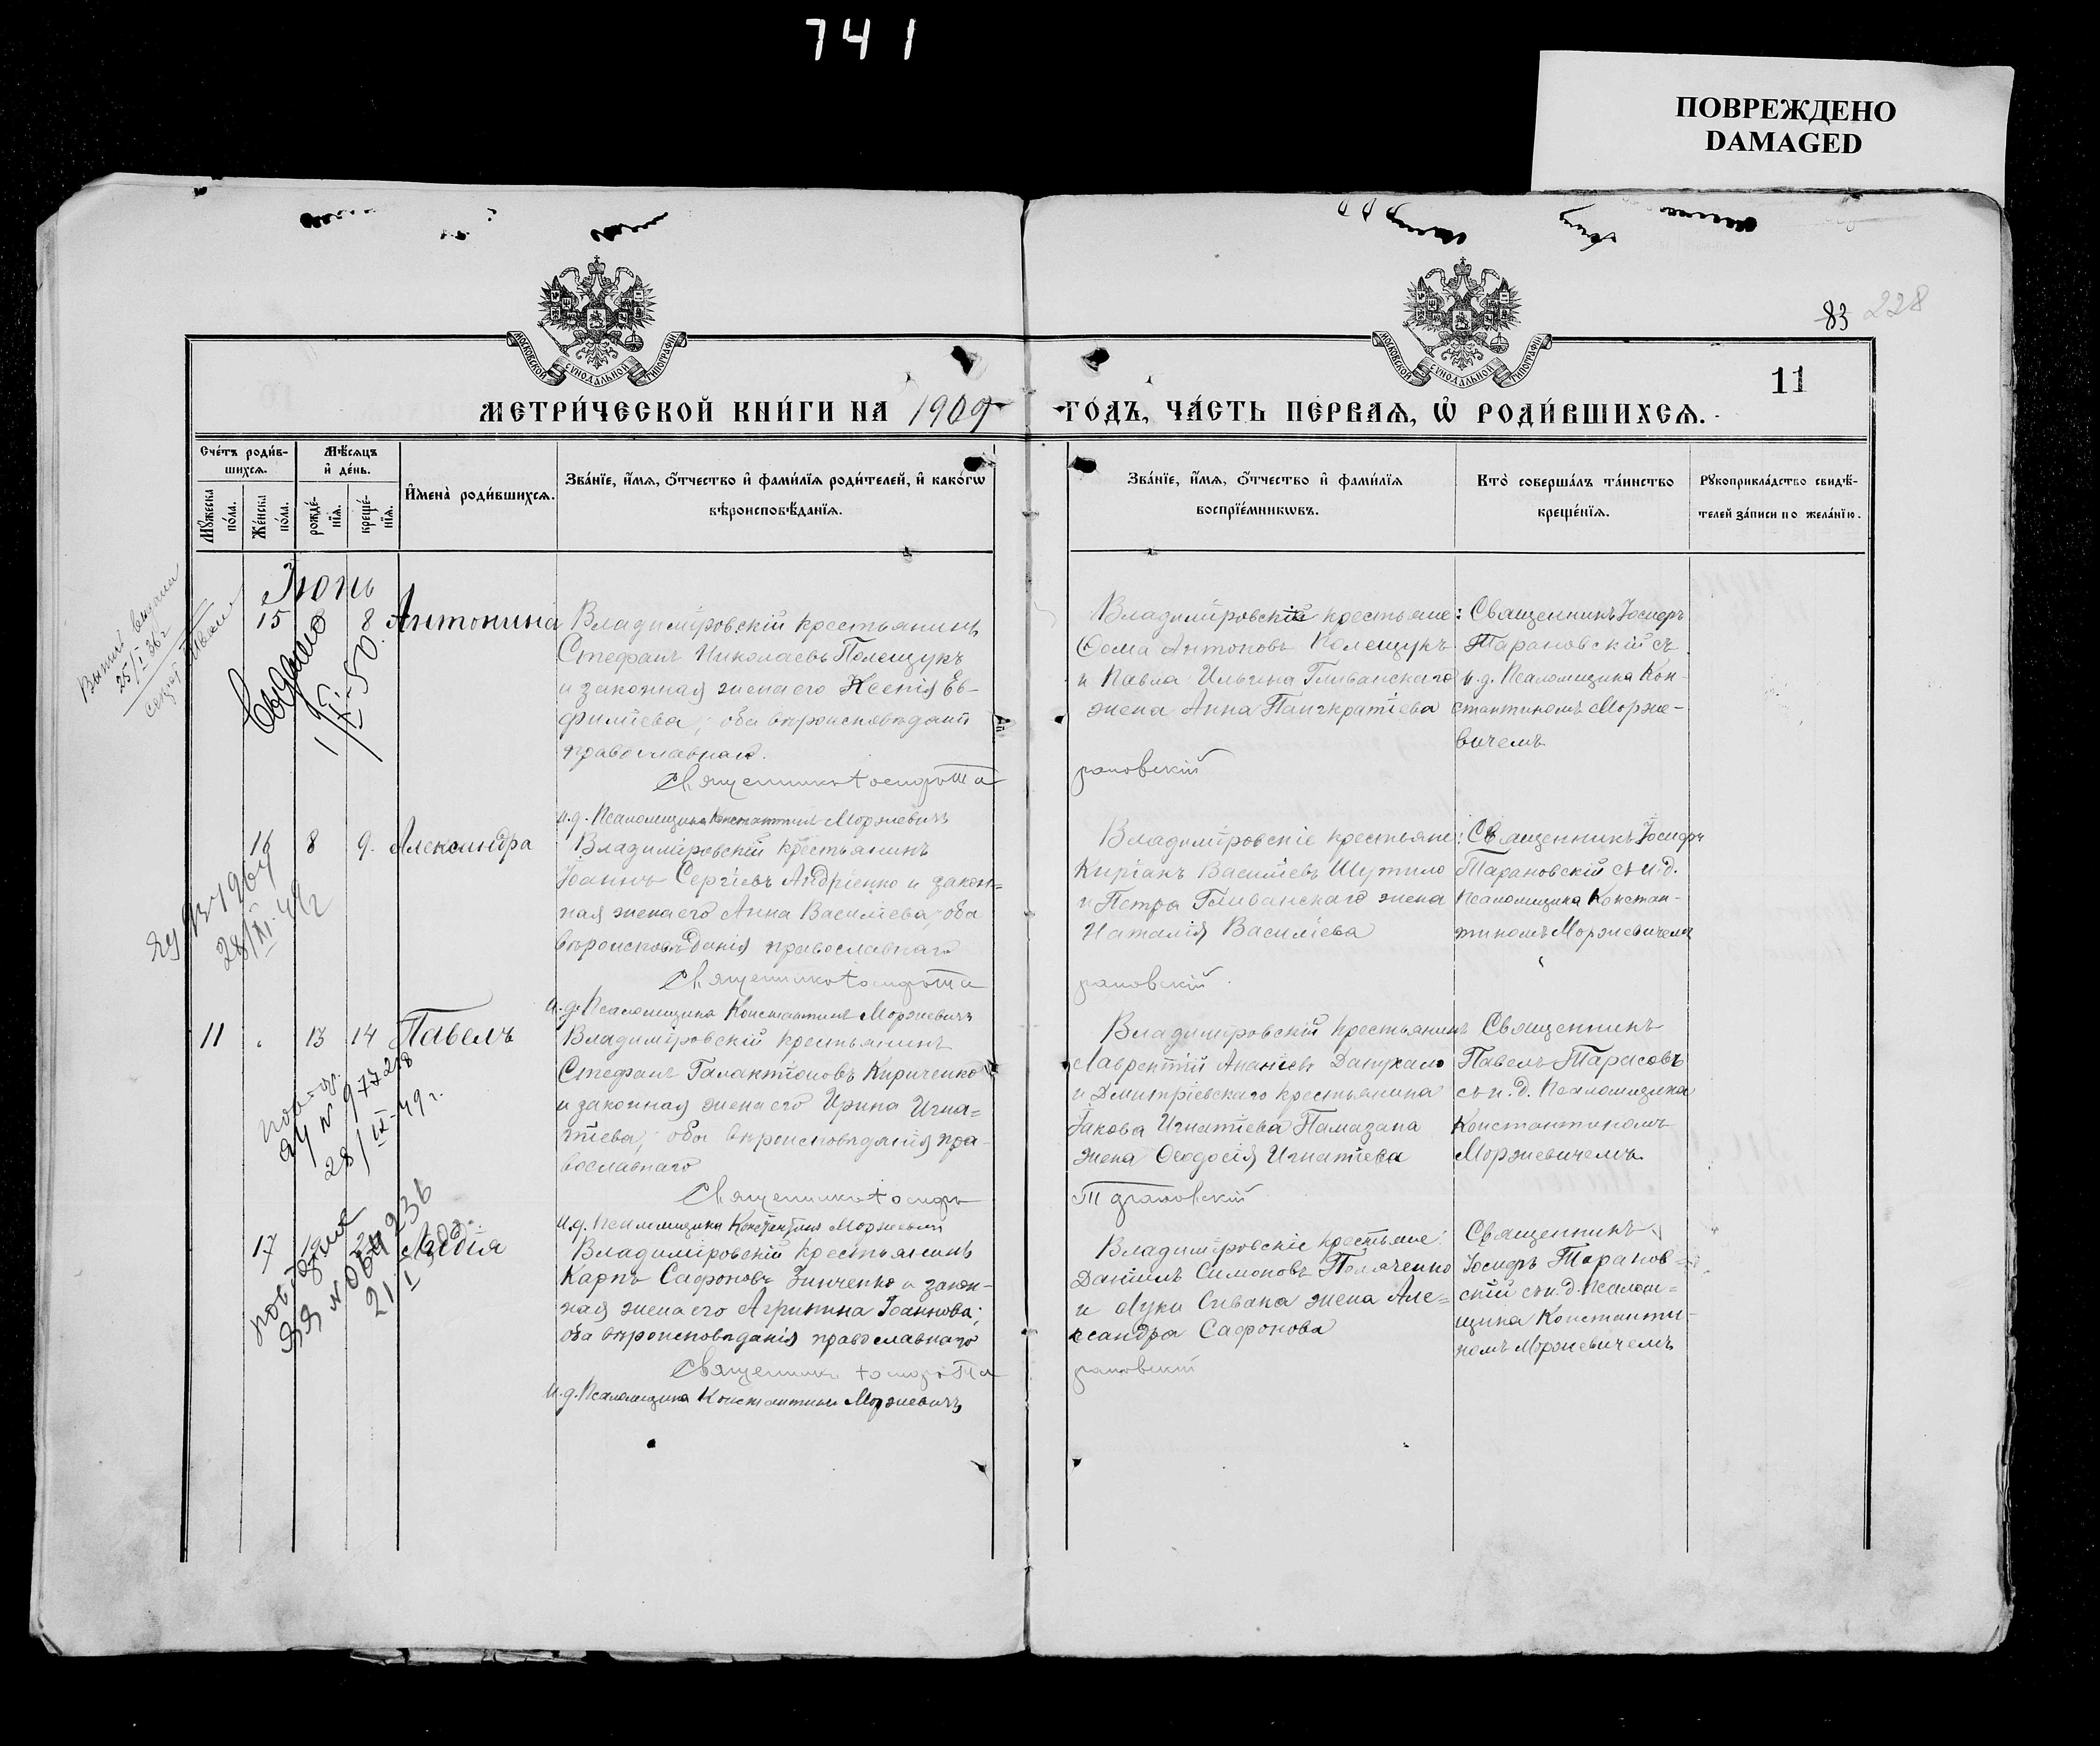 741
ПОВРЕЖДЕНО
DAMAGED
83 228
11
МОСКОВСКОЙ СУНОДАЛЬНОЙ ТИПОГРАФІИ
МОСКОВСКОЙ СУНОДАЛЬНОЙ ТИПОГРАФІИ
МЕТРИ́ЧЕСКОЙ КНИ́ГИ НА 1909
ГО́ДЪ, ЧА́СТЬ ПЕ́РВАѦ, Ѽ РОДИ́ВШИХСѦ.
Сче́тъ роди́в-
шихсѧ.
Мꙋжеска
по́ла.
Же́нска
по́ла.
Мѣ́сѧцъ
и҆ де́нь.
рожде́-
нїѧ.
креще́-
нїѧ.
И҆мена̀ роди́вшихсѧ.
Зва́нїе, и҆́мѧ, ѻ҆́тчество и҆ фами́лїѧ роди́телей, и҆ како́гѡ
вѣроисповѣ́данїѧ.
Зва́нїе, и҆́мѧ, ѻ҆́тчество и҆ фами́лїѧ
воспрїе́мникѡвъ.
Кто̀ соверша́лъ та́инство
креще́нїѧ.
Рꙋкоприкла́дство свидѣ́-
телей за́писи по жела́нїю.
Іюнь
15 8 Антонина
Владиміровскій крестьянинъ
Стефанъ Николаевъ Полещукъ
и законная жена его Ксенія Ев-
фиміева; оба вѣроисповѣданія
православнаго.
Священникъ Іосифъ Та
и.д. Псаломщика Константинъ Моржевичъ
Владиміровскіе крестьяне:
Ѳома Антоновъ Полещукъ
и Павла Ильина Гливанскаго
жена Анна Панкратіева
рановскій
Священникъ Іосифъ
Тарановскій съ
и.д. Псаломщика Кон-
стантиномъ Морже-
вичемъ
Выдано
25/I 36г
16 8 9. Александра
Владиміровскій крестьянинъ
Іоаннъ Сергіевъ Андріенко и закон=
ная жена его Анна Василіева; оба
вѣроисповѣданія православнаго
Священникъ Іосифъ Та
и.д. Псаломщика Константинъ Моржевичъ
Владиміровскіе крестьяне:
Кипріанъ Василіевъ Шутило
и Петра Гливанскаго жена
Наталія Василіева
рановскій
Священникъ Іосифъ
Тарановскій съ и.д.
Псаломщика Констан-
тиномъ Моржевичемъ
28/XI-49г
11 13 14 Павелъ
Владиміровскій крестьянинъ
Стефанъ Галактіоновъ Кириченко
и законная жена его Ирина Игна=
тіева; оба вѣроисповѣданія пра-
вославнаго
Священникъ Іосифъ
и.д. Псаломщика Константинъ Моржевичъ
Владиміровскій крестьянинъ
Лаврентій Ананіевъ
и Дмитріевскаго крестьянина
Іакова Игнатіева Памазана
жена Ѳеодосія Игнатіева
Тарановскій
Священникъ
Павелъ Тарасовъ
съ и.д. Псаломщика
Константиномъ
Моржевичемъ.
28/IX-49г.
17 Лидія
Владиміровскій крестьянинъ
Карпъ Сафоновъ Зинченко и закон-
ная жена его Агрипина Іоаннова;
оба вѣроисповѣданія православнаго
Священникъ Іосифъ Та
и.д. Псаломщика Константинъ Моржевичъ
Владиміровскіе крестьяне:
Даніилъ Симоновъ
и Луки Сивака жена Але=
ксандра Сафонова
рановскій
Священникъ
Іосифъ Таранов=
скій съ и.д. Псалом=
щика Константи-
номъ Моржевичемъ